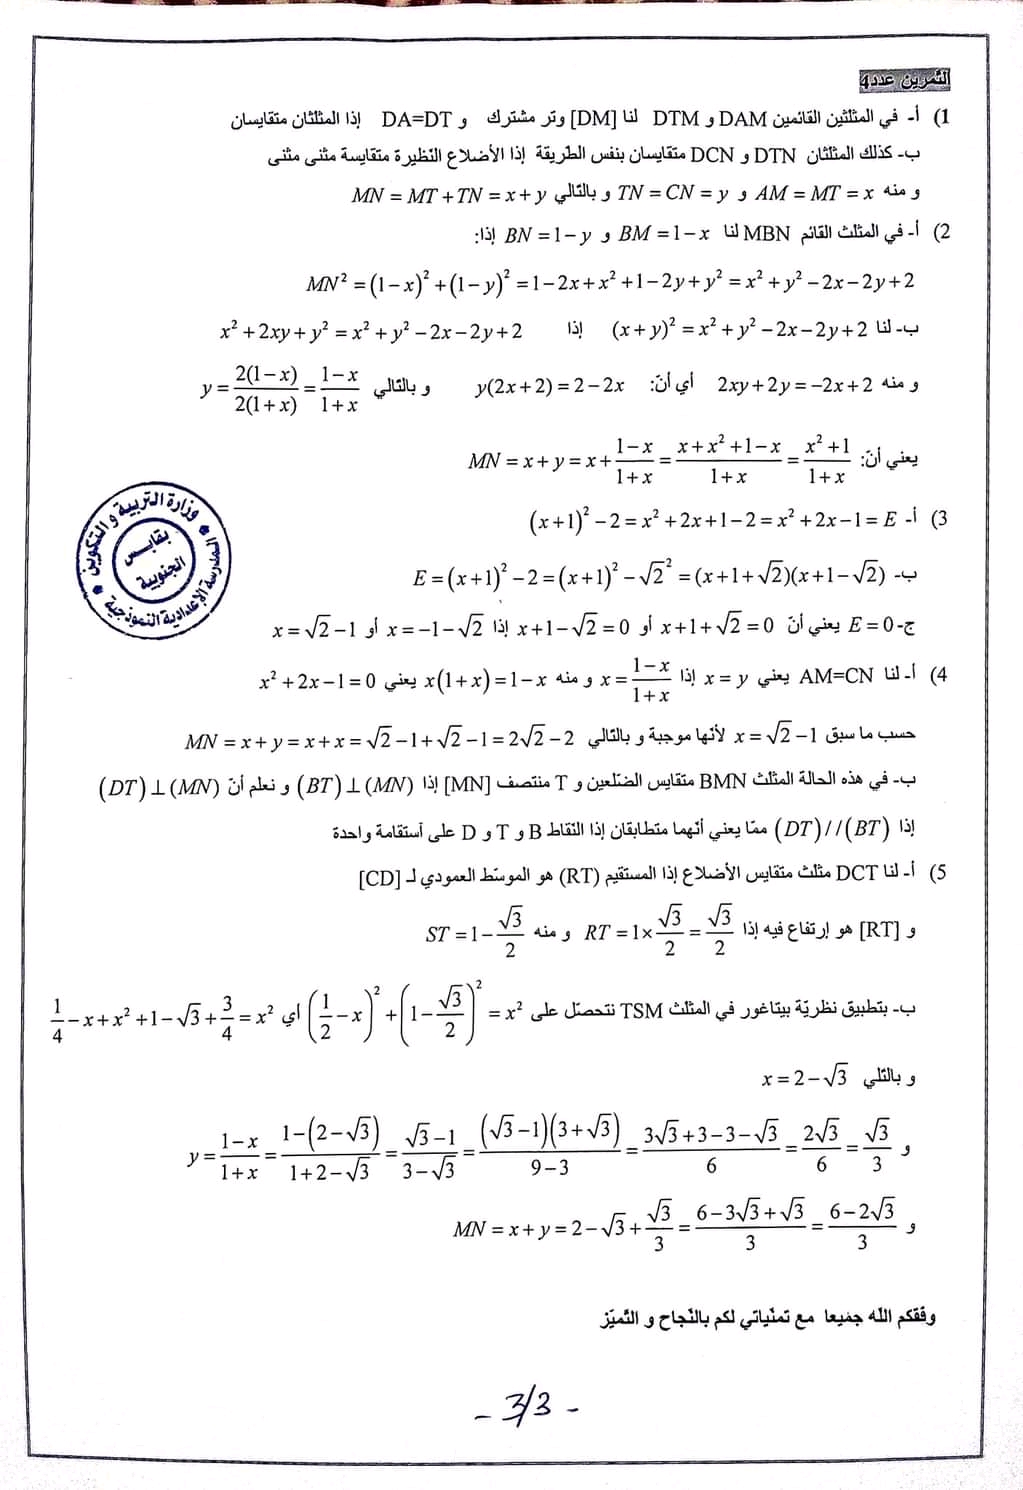 التمرين عدد4
1) أ- في المثلثين القائمين DAM و DTM لنا [DM] وتر مشترك و DA=DT إذا المثلثان متقايسان
ب- كذلك المثلثان DTN و DCN متقايسان بنفس الطريقة إذا الأضلاع النظيرة متقايسة مثنى مثنى
و منه AM = MT = x و TN = CN = y و بالتالي MN = MT + TN = x + y
2) أ- في المثلث القائم MBN لنا BM = 1 − x و BN = 1 − y إذا:
MN² = (1 − x)² + (1 − y)² = 1 − 2x + x² + 1 − 2y + y² = x² + y² − 2x − 2y + 2
ب- لنا (x + y)² = x² + y² − 2x − 2y + 2 إذا x² + 2xy + y² = x² + y² − 2x − 2y + 2
و منه 2xy + 2y = −2x + 2 أي أنّ: y(2x + 2) = 2 − 2x و بالتالي y = 2(1 − x)/2(1 + x) = (1 − x)/(1 + x)
يعني أنّ: MN = x + y = x + (1 − x)/(1 + x) = (x + x² + 1 − x)/(1 + x) = (x² + 1)/(1 + x)
3) أ- (x + 1)² − 2 = x² + 2x + 1 − 2 = x² + 2x − 1 = E
ب- E = (x + 1)² − 2 = (x + 1)² − √2² = (x + 1 + √2)(x + 1 − √2)
ج- E = 0 يعني أنّ x + 1 + √2 = 0 أو x + 1 − √2 = 0 إذا x = −1 − √2 أو x = √2 − 1
4) أ- لنا AM=CN يعني x = y إذا x = (1 − x)/(1 + x) و منه x(1 + x) = 1 − x يعني x² + 2x − 1 = 0
حسب ما سبق x = √2 − 1 لأنها موجبة و بالتالي MN = x + y = x + x = √2 − 1 + √2 − 1 = 2√2 − 2
ب- في هذه الحالة المثلث BMN متقايس الضلعين و T منتصف [MN] إذا (BT) ⊥ (MN) و نعلم أنّ (DT) ⊥ (MN)
إذا (DT) // (BT) ممّا يعني أنهما متطابقان إذا النقاط B و T و D على أستقامة واحدة
5) أ- لنا DCT مثلث متقايس الأضلاع إذا المستقيم (RT) هو الموسّط العمودي لـ [CD]
و [RT] هو إرتفاع فيه إذا RT = 1 × √3/2 = √3/2 و منه ST = 1 − √3/2
ب- بتطبيق نظريّة بيتاغور في المثلث TSM نتحصّل على (1/2 − x)² + (1 − √3/2)² = x² أي 1/4 − x + x² + 1 − √3 + 3/4 = x²
و بالتلي x = 2 − √3
و y = (1 − x)/(1 + x) = (1 − (2 − √3))/(1 + 2 − √3) = (√3 − 1)/(3 − √3) = (√3 − 1)(3 + √3)/(9 − 3) = (3√3 + 3 − 3 − √3)/6 = 2√3/6 = √3/3
و MN = x + y = 2 − √3 + √3/3 = (6 − 3√3 + √3)/3 = (6 − 2√3)/3
وزارة التربية و التكوين
المدرسة الإعدادية النموذجية
بقابس
الجنوبية
وفقكم الله جميعا مع تمنّياتي لكم بالنّجاح و التّميّز
- 3/3 -